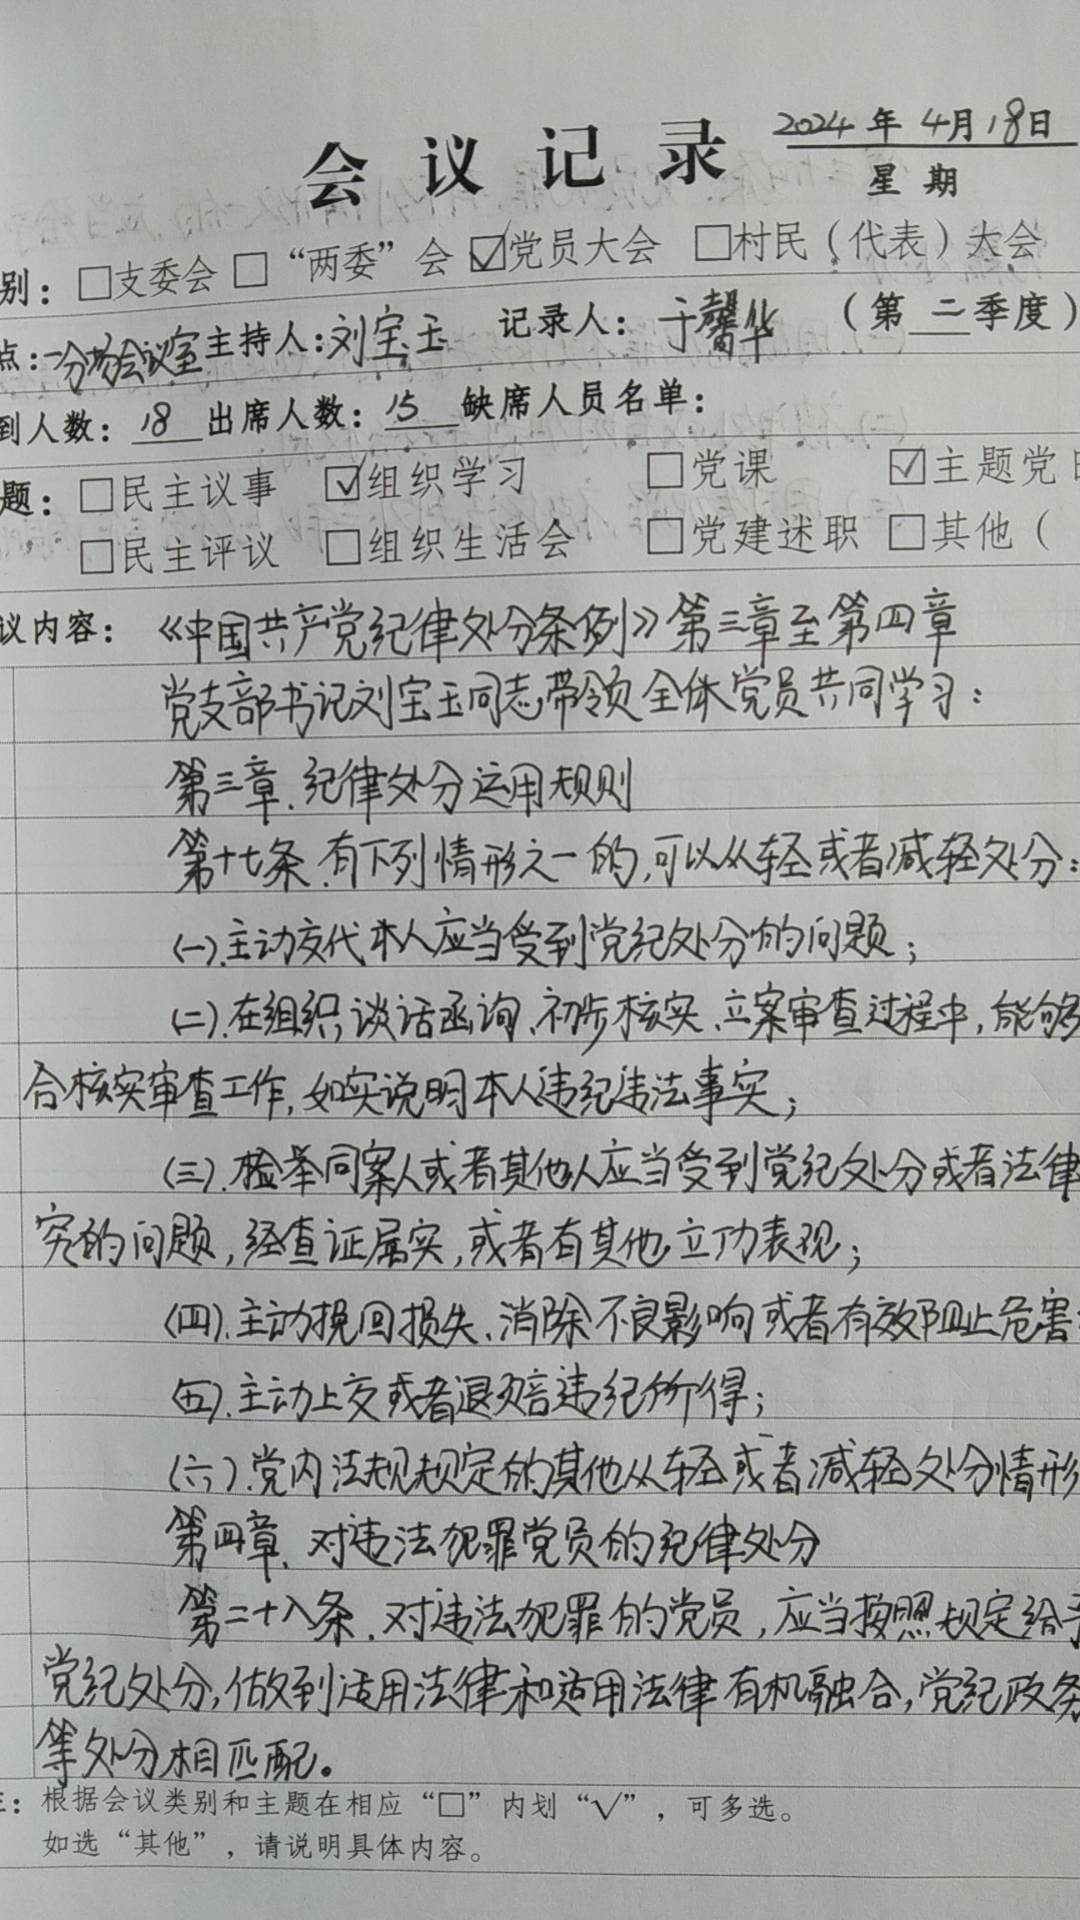 2024年4月18日
会议记录
星期
别：□支委会 □“两委”会 ☑党员大会 □村民（代表）大会
点：一分场会议室 主持人：刘宝玉 记录人：于馨华 （第二季度）
到人数：18 出席人数：15 缺席人员名单：
题：□民主议事 ☑组织学习 □党课 ☑主题党日
□民主评议 □组织生活会 □党建述职 □其他（
议内容：《中国共产党纪律处分条例》第三章至第四章
党支部书记刘宝玉同志带领全体党员共同学习：
第三章、纪律处分运用规则
第十七条、有下列情形之一的，可以从轻或者减轻处分：
（一）、主动交代本人应当受到党纪处分的问题；
（二）、在组织谈话函询、初步核实、立案审查过程中，能够
合核实审查工作，如实说明本人违纪违法事实；
（三）、检举同案人或者其他人应当受到党纪处分或者法律
究的问题，经查证属实，或者有其他立功表现；
（四）、主动挽回损失、消除不良影响或者有效阻止危害
（五）、主动上交或者退赔违纪所得；
（六）、党内法规规定的其他从轻或者减轻处分情形
第四章、对违法犯罪党员的纪律处分
第二十八条、对违法犯罪的党员，应当按照规定给予
党纪处分，做到适用法律和适用法律有机融合，党纪政务
等处分相匹配。
注：根据会议类别和主题在相应“□”内划“√”，可多选。
如选“其他”，请说明具体内容。